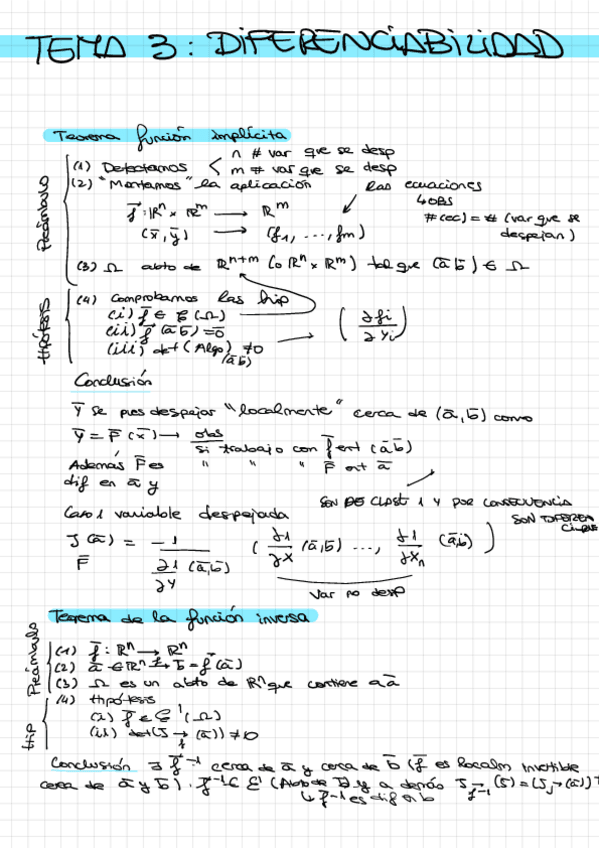 TEMA 3: DIFERENCIABILIDAD
Teorema función implícita
Preámbulo
(1) Detectamos < n # var que se desp
m # var que se desp
(2) "Montamos" la aplicación
las ecuaciones
f̄: ℝⁿ × ℝᵐ → ℝᵐ
(x̄, ȳ) → (f₁, ..., fm)
OBS
#(ec) = # (var que se despejan)
(3) Ω abto de ℝⁿ⁺ᵐ (o ℝⁿ × ℝᵐ) tal que (ā b̄) ∈ Ω
Hipótesis
(4) Comprobamos las hip
(i) f̄ ∈ C (Ω)
(ii) f̄ (ā b̄) = 0̄
(iii) det (Algo) ≠ 0
(ā b̄)
(∂fi / ∂yi)
Conclusión
ȳ se pues despejar "localmente" cerca de (ā, b̄) como
ȳ = F̄ (x̄) → obs
si trabajo con f̄ ent (ā b̄)
Además F̄ es " " " F̄ ent ā
dif en ā y
SON DE CLASE 1 Y POR CONSECUENCIA
SON DIFERENCIABLE
Caso 1 variable despejada
J (ā) = -1 / (∂1/∂y (ā, b̄)) (∂1/∂x (ā, b̄) ..., ∂1/∂xn (ā, b̄))
F̄
Var no desp
Teorema de la función inversa
Preámbulo
(1) f̄: ℝⁿ → ℝⁿ
(2) ā ∈ ℝⁿ b̄ = f̄ (ā)
(3) Ω es un abto de ℝⁿ que contiene a ā
Hip
(4) Hipótesis
(i) f̄ ∈ C¹ (Ω)
(ii) det (J f (ā)) ≠ 0
Conclusión ∃ f̄⁻¹ cerca de ā y cerca de b̄ (f̄ es localm invertible
cerca de ā y b̄). f̄⁻¹ ∈ C¹ (Abto de b̄) y además J f⁻¹ (b̄) = (J f (ā))
↳ f̄⁻¹ es dif en b